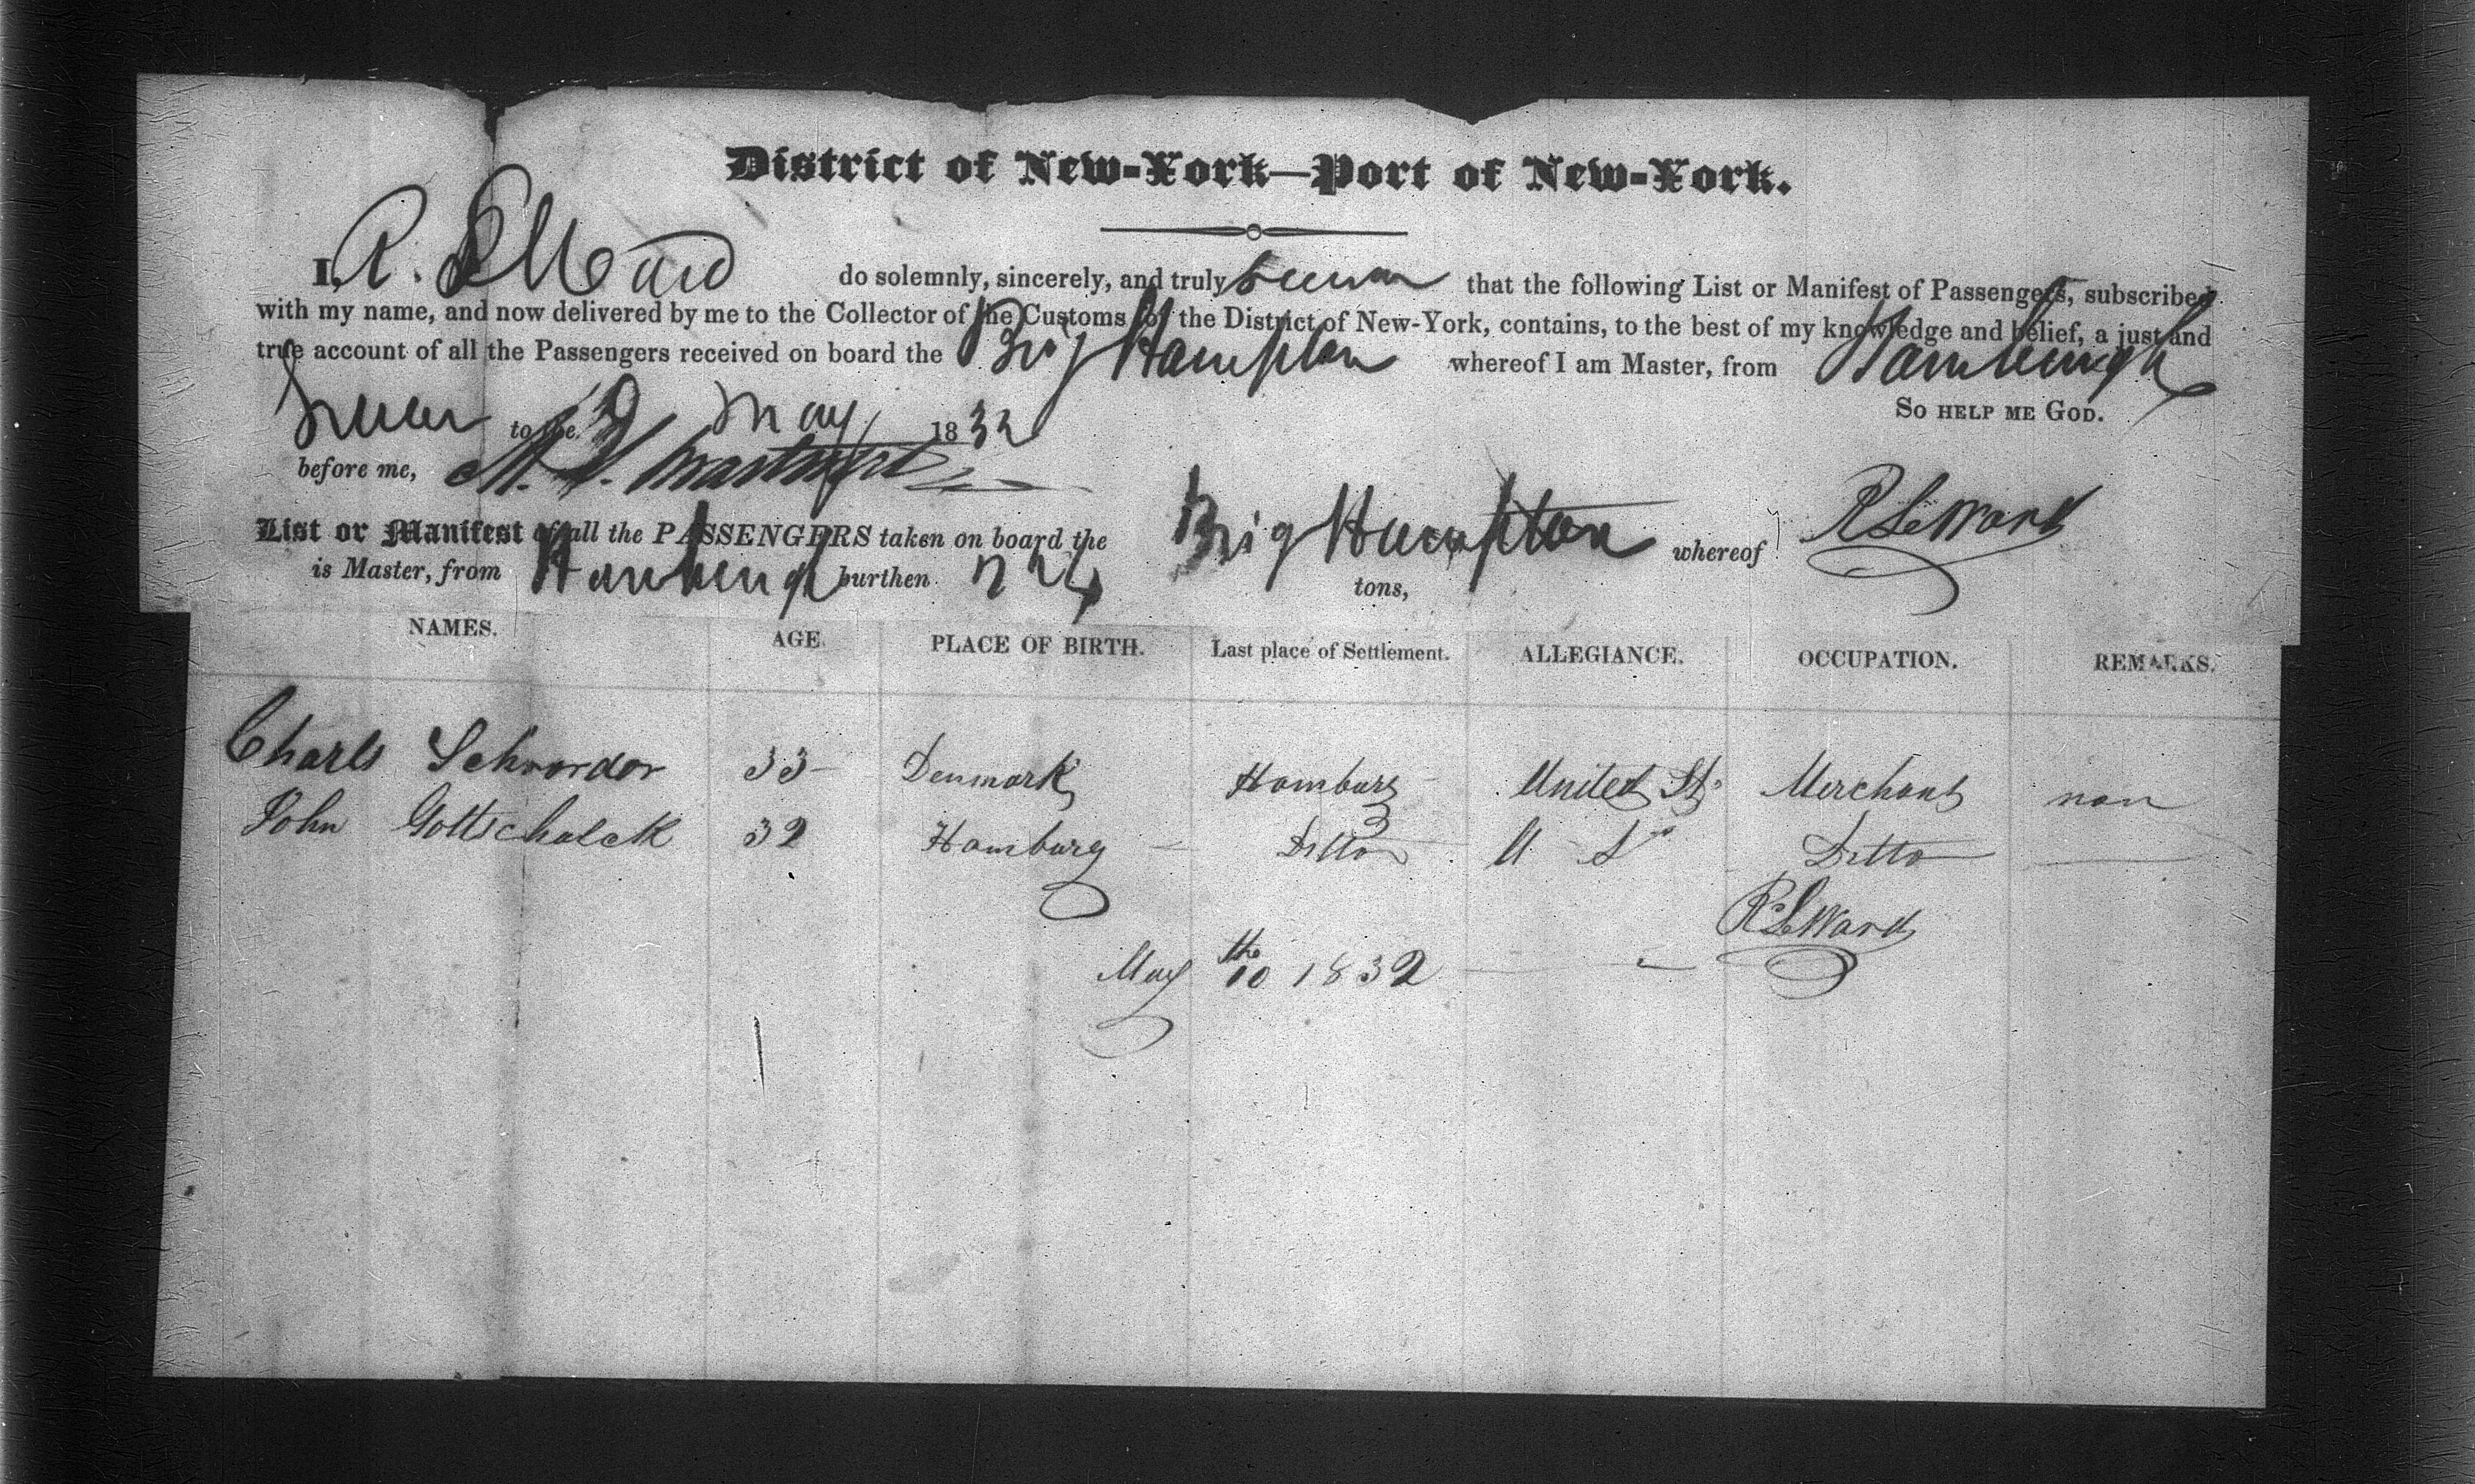 District of New-York—Port of New-York.
I, R. S Ward do solemnly, sincerely, and truly swear that the following List or Manifest of Passengers, subscribed
with my name, and now delivered by me to the Collector of the Customs for the District of New-York, contains, to the best of my knowledge and belief, a just and
true account of all the Passengers received on board the Brig Hampton whereof I am Master, from Hamburgh
So help me God.
to the May 1832
before me,
List or Manifest of all the PASSENGERS taken on board the Brig Hampton whereof R S Ward
is Master, from Hamburgh burthen tons,
NAMES. AGE. PLACE OF BIRTH. Last place of Settlement. ALLEGIANCE. OCCUPATION. REMARKS.
Charls Schrordor 33 Denmark Hamburg United St. Merchant non
John Gottschalck 32 Hamburg Ditto U S Ditto
R S Ward
May 10th 1832